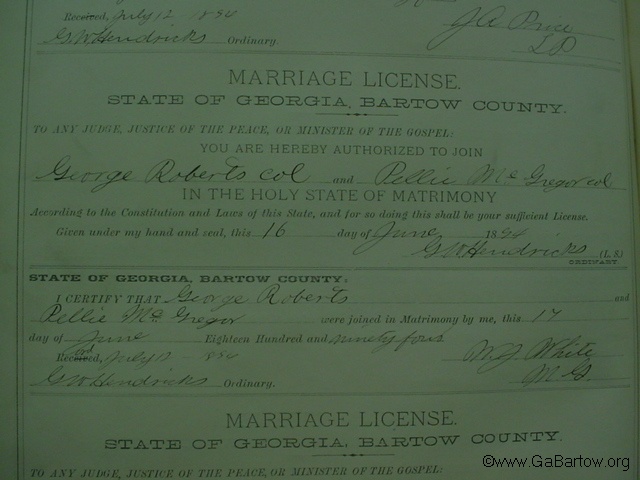 Received, July 12 1894
J A Price
G W Hendricks Ordinary. L P
MARRIAGE LICENSE.
STATE OF GEORGIA, BARTOW COUNTY.
TO ANY JUDGE, JUSTICE OF THE PEACE, OR MINISTER OF THE GOSPEL:
YOU ARE HEREBY AUTHORIZED TO JOIN
George Roberts col and Pellie McGregor col
IN THE HOLY STATE OF MATRIMONY
According to the Constitution and Laws of this State, and for so doing this shall be your sufficient License.
Given under my hand and seal, this 16 day of June 1894
G W Hendricks (L. S.)
ORDINARY.
STATE OF GEORGIA, BARTOW COUNTY:
I CERTIFY THAT George Roberts and
Pellie McGregor were joined in Matrimony by me, this 17
day of June Eighteen Hundred and ninety four
July 12 1894 W J White
G W Hendricks Ordinary. M. G.
MARRIAGE LICENSE.
STATE OF GEORGIA, BARTOW COUNTY.
TO ANY JUDGE, JUSTICE OF THE PEACE, OR MINISTER OF THE GOSPEL:
©www.GaBartow.org